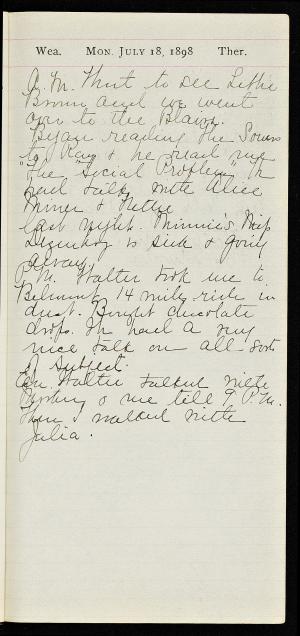 Wea. MON. JULY 18, 1898 Ther.
A. M. Went to see Lettie
Brown and we went
over to the
Began reading the
to Ray & he read me
"The Social Problem." I
had talk with Alice
Miner & Nettie
last night. Minnie's Miss
is sick & going
away.
P. M. Walter took me to
Belmont 14 mile ride in
dust. Bought chocolate
drops. We had a very
nice talk on all sorts
of subject.
Ev. Walter talked with
& me till 9 P. M.
Then I walked with
Julia.